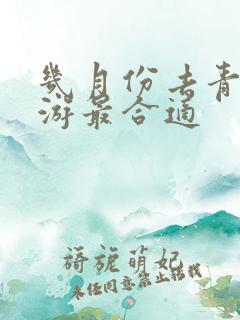 几月份去青
游最合适
旖旎萌妃
未经同意禁止转载